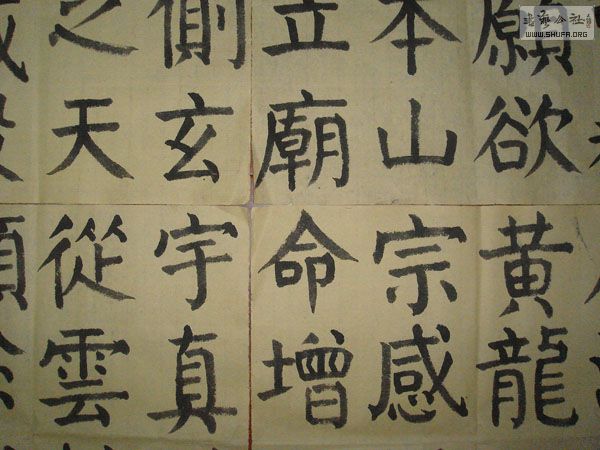 願欲黄龍
本山宗感
立廟命增
側玄宇真
之天從雲
WWW.SHUFA.ORG